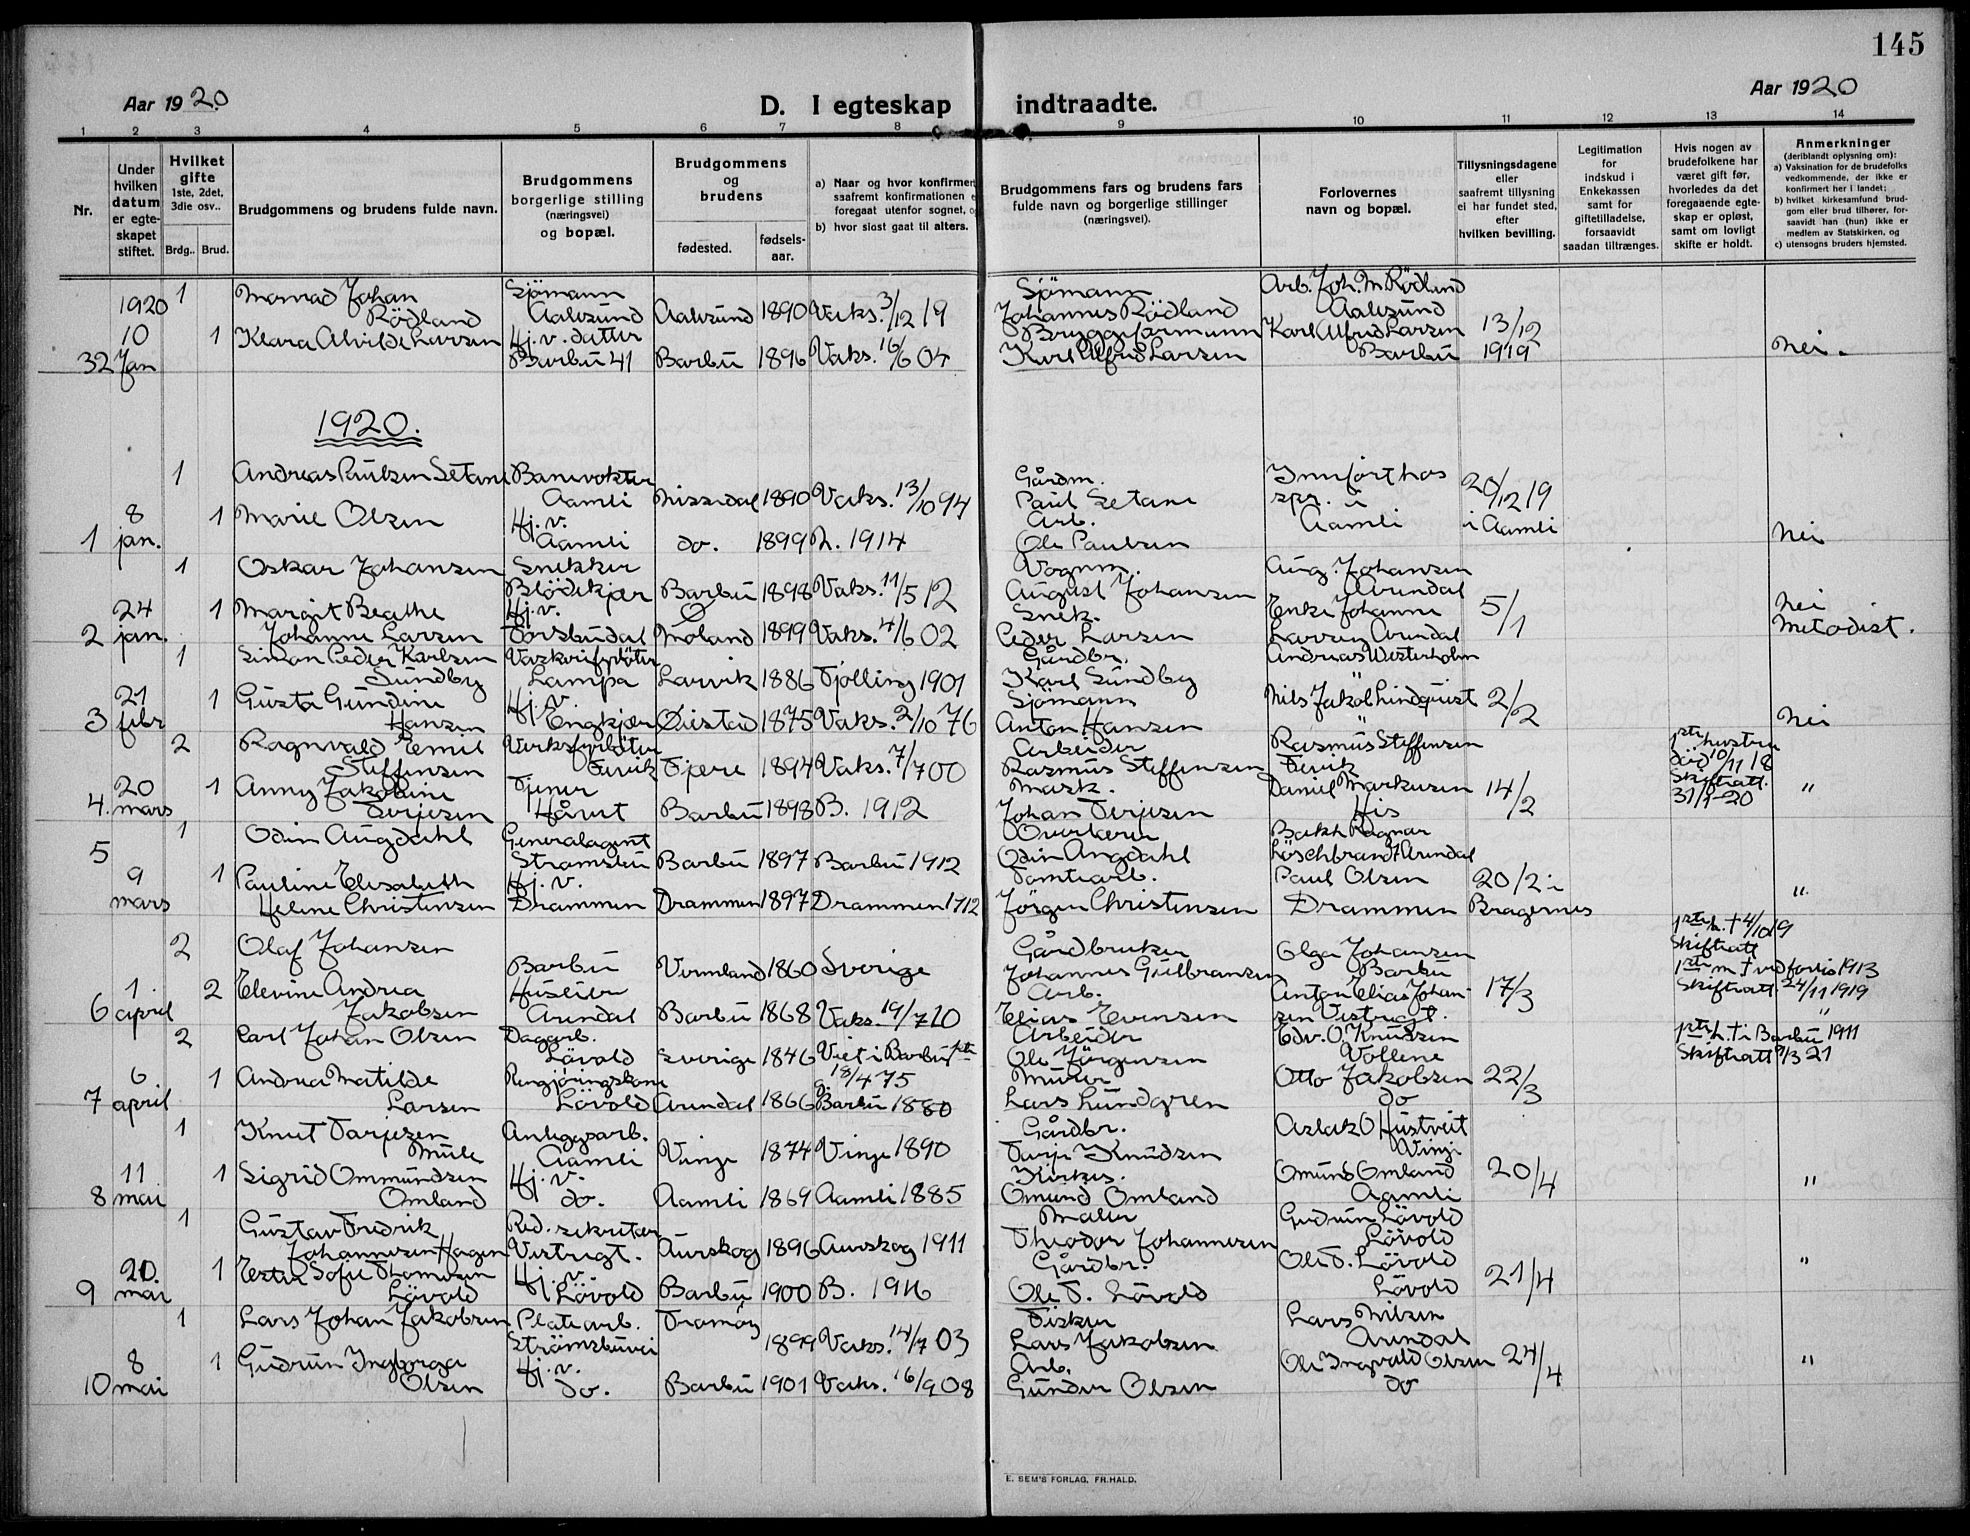 145
Aar 1920
D. I egteskap indtraadte.
Aar 1920
1 2 3 4 5 6 7 8 9 10 11 12 13 14
Nr.
Under hvilken datum er egte-skapet stiftet.
Hvilket gifte
1ste, 2det, 3die osv..
Brdg.. Brud.
Brudgommens og brudens fulde navn.
Brudgommens borgerlige stilling (næringsvei) og bopæl.
Brudgommens og brudens
fødested. fødsels-aar.
a) Naar og hvor konfirmert saafremt konfirmationen er foregaat utenfor sognet, og
b) hvor sidst gaat til alters.
Brudgommens fars og brudens fars fulde navn og borgerlige stillinger (næringsvei).
Forlovernes navn og bopæl.
Tillysningsdagene eller saafremt tillysning ei har fundet sted, efter hvilken bevilling.
Legitimation for indskud i Enkekassen samt for giftetilladelse, forsaavidt saadan tiltrænges.
Hvis nogen av brudefolkene har været gift før, hvorledes da det foregaaende egte-skap er opløst, samt om lovligt skifte er holdt.
Anmerkninger
(deriblandt oplysning om):
a) Vaksination for de brudefolks vedkommende, der ikke er konfirmert her i landet;
b) hvilket kirkesamfund brud-gom eller brud tilhører, for-saavidt han (hun) ikke er medlem av Statskirken, og
c) utensogns bruders hjemsted.
1 Johan Sjömann Sjömann Arb. Joh. M. Rödland
1920 Rödland Aalesund Aalesund 1890 Vaks. 3/12 19 Johannes Rödland Aalesund
10 1 Klara Alvilde Larsen Hj. v. datter Bryggeformann Karl Alfred Larsen 13/12
32 Jan Barbu 41 Barbu 1896 Vaks. 16/6 04 Karl Alfred Larsen Barbu 1919 Nei.
1920.
1 Andreas Paulsen Setane Banevokter Gårdm. Innfört hos
Aamli Nissedal 1890 Vaks. 13/10 94 Paul Setane spr. i 20/12 19
8 1 Marie Olsen Hj. v. Arb. Aamli i Aamli
1 jan. Aamli do. 1899 N. 1914 Ole Paulsen Nei
1 Oskar Johansen Snekker Vognm. Aug. Johansen
Blödekjær Barbu 1898 Vaks. 11/5 12 August Johansen Arendal
24 1 Margit Beathe Hj. v. Ø Snek. Enke Johanne 5/1 Nei
2 jan. Johanne Larsen Torsbudal Moland 1899 Vaks. 4/6 02 Peder Larsen Larsen Arendal Metodist.
1 Simon Peder Karlsen Gårdbr. Andreas Westerholm
Sundby Lampa Larvik 1886 Tjölling 1901 Karl Sundby
21 1 Gusta Gundine Hj. v. Sjömann Nils Jakob Lindquist 2/2
3 febr Hansen Engkjær Øiestad 1875 Vaks. 2/10 76 Anton Hansen Nei
2 Ragnvald Emil Verksfyrböter Arbeider Rasmus Steffensen 1ste hustru
Steffensen Fevik Fjære 1894 Vaks. 7/7 00 Rasmus Steffensen Fevik död 10/11 18
20 1 Anny Jakobine Tjener Mask. Daniel Markusen 14/2 Skifteatt.
4. mars Terjesen Håvet Barbu 1898 B. 1912 Johan Terjesen His 31/1-20 "
1 Odin Augdahl Generalagent Overlærer Bokh. Ragnar
5 Strømsbu Barbu 1897 Barbu 1912 Odin Augdahl Löschbrandt Arendal
9 1 Pauline Elisabeth Hj. v. Tomtearb. Paul Olsen 20/2 i
mars Helene Christensen Drammen Drammen 1897 Drammen 1912 Jørgen Christensen Drammen Bragernes "
2 Olaf Johansen Gårdbruker Olga Johansen 1ste h. † 4/10 19
Barbu Vermland 1860 Sverige Johannes Gulbransen Barbu Skifteatt
1. 2 Elevine Andrea Husleier Arb. Anton Elias Johan- 17/3 1ste m † ved forlis 1913
6 april Jakobsen Arendal Barbu 1868 Vaks. 19/7 20 Elias Evensen sen Vestregt. Skifteatt 24/11 1919 "
2 Carl Johan Olsen Dagarb. Arbeider Edv. O. Knudsen 1ste h. † i Barbu 1911
Lövold Sverige 1846 Viet i Barbu 1ste Ole Jörgensen Vollene Skifteatt 9/3 21
6 1 Andrea Matilde Rengjöringskone g. 18/4 75 Murer Otto Jakobsen 22/3
7 april Larsen Lövold Arendal 1866 Barbu 1880 Lars Lundgren do
1 Knut Tarjesen Anleggsarb. Gårdbr. Aslak O Hustveit
Mule Aamli Vinje 1874 Vinje 1890 Tarje Knudsen Vinje
11 1 Sigrid Ommundsen Hj. v. Kirkes. Omund Omland 20/4
8 mai Omland do. Aamli 1869 Aamli 1885 Omund Omland Aamli "
1 Gustav Fredrik Red. sekretær Maler Gudrun Lövold
Johannesen Hagen Vestregt. Aurskog 1896 Aurskog 1911 Theodor Johannesen Lövold
20. 1 Ester Sofie Thomesen Hj. v. Gårdbr. Ole T. Lövold "
9 mai Lövold Lövold Barbu 1900 B. 1916 Ole T. Lövold Lövold 21/4
1 Lars Johan Jakobsen Platearb. Tromöy Fisker Lars Nilsen
Strömsbuvei 1899 Vaks. 14/7 03 Lars Jakobsen Arendal
8 1 Gudrun Ingeborga Hj. v. Arb. Ole Ingvald Olsen 24/4 "
10 mai Olsen do. Barbu 1901 Vaks. 16/9 08 Gunder Olsen do
E. SEM'S FORLAG, FR.HALD.